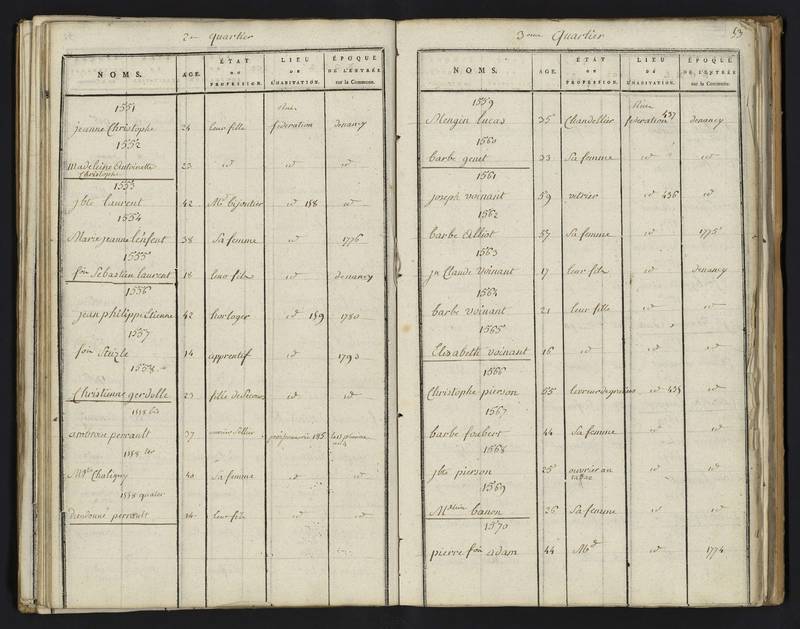 2me Quartier
NOMS. AGE. ÉTAT OU PROFESSION. LIEU DE L'HABITATION. ÉPOQUE DE L'ENTRÉE sur la Commune.
1551
Rue
jeanne Christophe 24 leur fille federation denancy
1552
Madeleine Antoinette Christophe 23 id id id
1553
jbte laurent 42 Md bijoutier id 188 id
1554
Marie jeanne lenfent 38 Sa femme id 1776
1555
fois Sebastien laurent 18 leur fils id denancy
1556
jean philippe Etienne 42 horloger id 189 1780
1557
fois 14 apprentif id 1793
1558
Christienne gerdolle 23 fille de id id
1558 bis
ambroise perrault 37 185
1558 ter
Mte Chaligny 40 Sa femme id id
1558 quater
dieudonné perrault 14 leur fils id id
3eme Quartier 53
NOMS. AGE. ÉTAT OU PROFESSION. LIEU DE L'HABITATION. ÉPOQUE DE L'ENTRÉE sur la Commune.
1559
Rue
Mengin Lucas 35 Chandellier federation 437 denancy
1560
barbe genet 33 Sa femme id id
1561
joseph voinant 59 vitrier id 436 id
1562
barbe Alliot 57 Sa femme id 1775
1563
jn Claude Voinant 17 leur fils id denancy
1564
barbe voinant 21 leur fille id id
1565
Elisabeth voinant 16 id id id
1566
Christophe pierson 65 id 435 id
1567
barbe foubert 44 Sa femme id id
1568
jbte pierson 25 ouvrier au tabac id id
1569
Madelaine banon 26 Sa femme id id
1570
pierre fois adam 44 Md id 1774